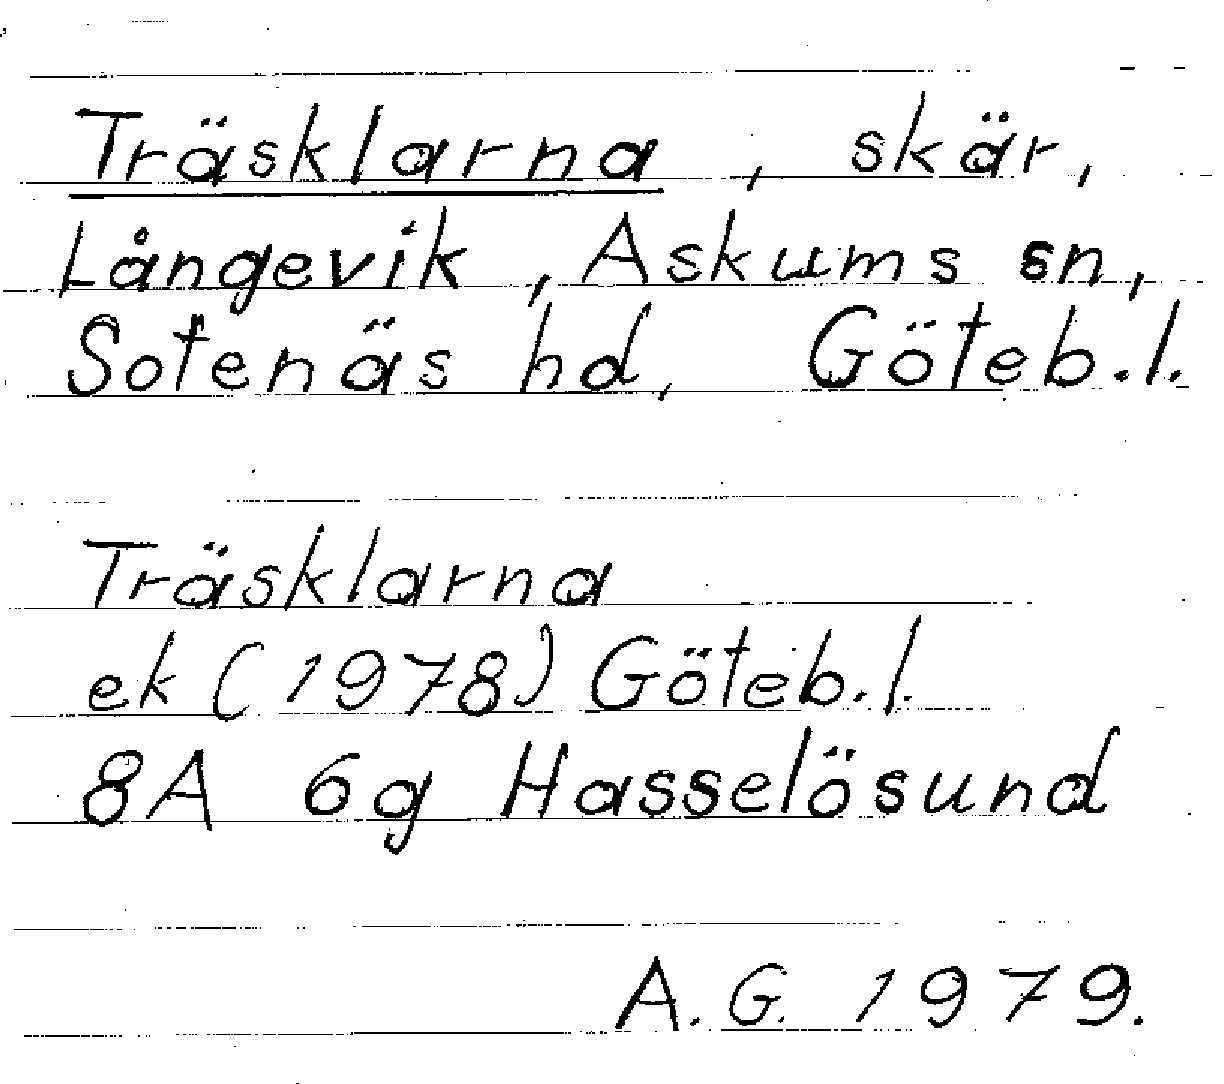 Träsklarna, skär,
Långevik, Askums sn,
Sotenäs hd, Göteb.l.
Träsklarna
ek (1978) Göteb.l.
8A 6g Hasselösund
A.G. 1979.